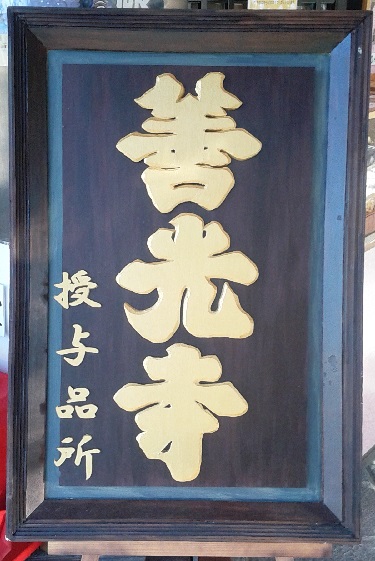 善光寺
授与品所